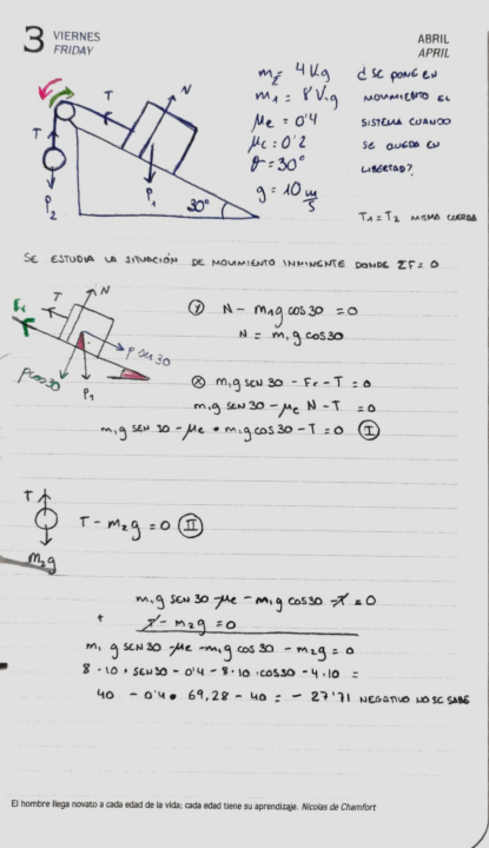 3 VIERNES
FRIDAY
ABRIL
APRIL
m2= 4 Kg
m1= 8 Kg
μe = 0'4
μc = 0'2
θ = 30°
g = 10 m/s
¿SE PONE EN
MOVIMIENTO EL
SISTEMA CUANDO
SE QUEDA EN
LIBERTAD?
T1 = T2 MISMA CUERDA
T
N
T
P1
P2
30°
SE ESTUDIA LA SITUACIÓN DE MOVIMIENTO INMINENTE DONDE ΣF = 0
Fr
T
N
P sen 30
P cos 30
P1
Y N - m1g cos30 = 0
N = m1g cos30
X m1g SEN 30 - Fr - T = 0
m1g SEN 30 - μe N - T = 0
m1g SEN 30 - μe • m1g cos30 - T = 0 I
T
m2g
T - m2g = 0 II
m1g SEN 30 - μe - m1g cos30 - T = 0
+ T - m2g = 0
m1 g SEN 30 - μe - m1g cos 30 - m2g = 0
8 · 10 · SEN30 - 0'4 - 8 · 10 · cos30 - 4 · 10 =
40 - 0'4 • 69,28 - 40 = - 27'71 NEGATIVO NO SE SABE
El hombre llega novato a cada edad de la vida; cada edad tiene su aprendizaje. Nicolas de Chamfort